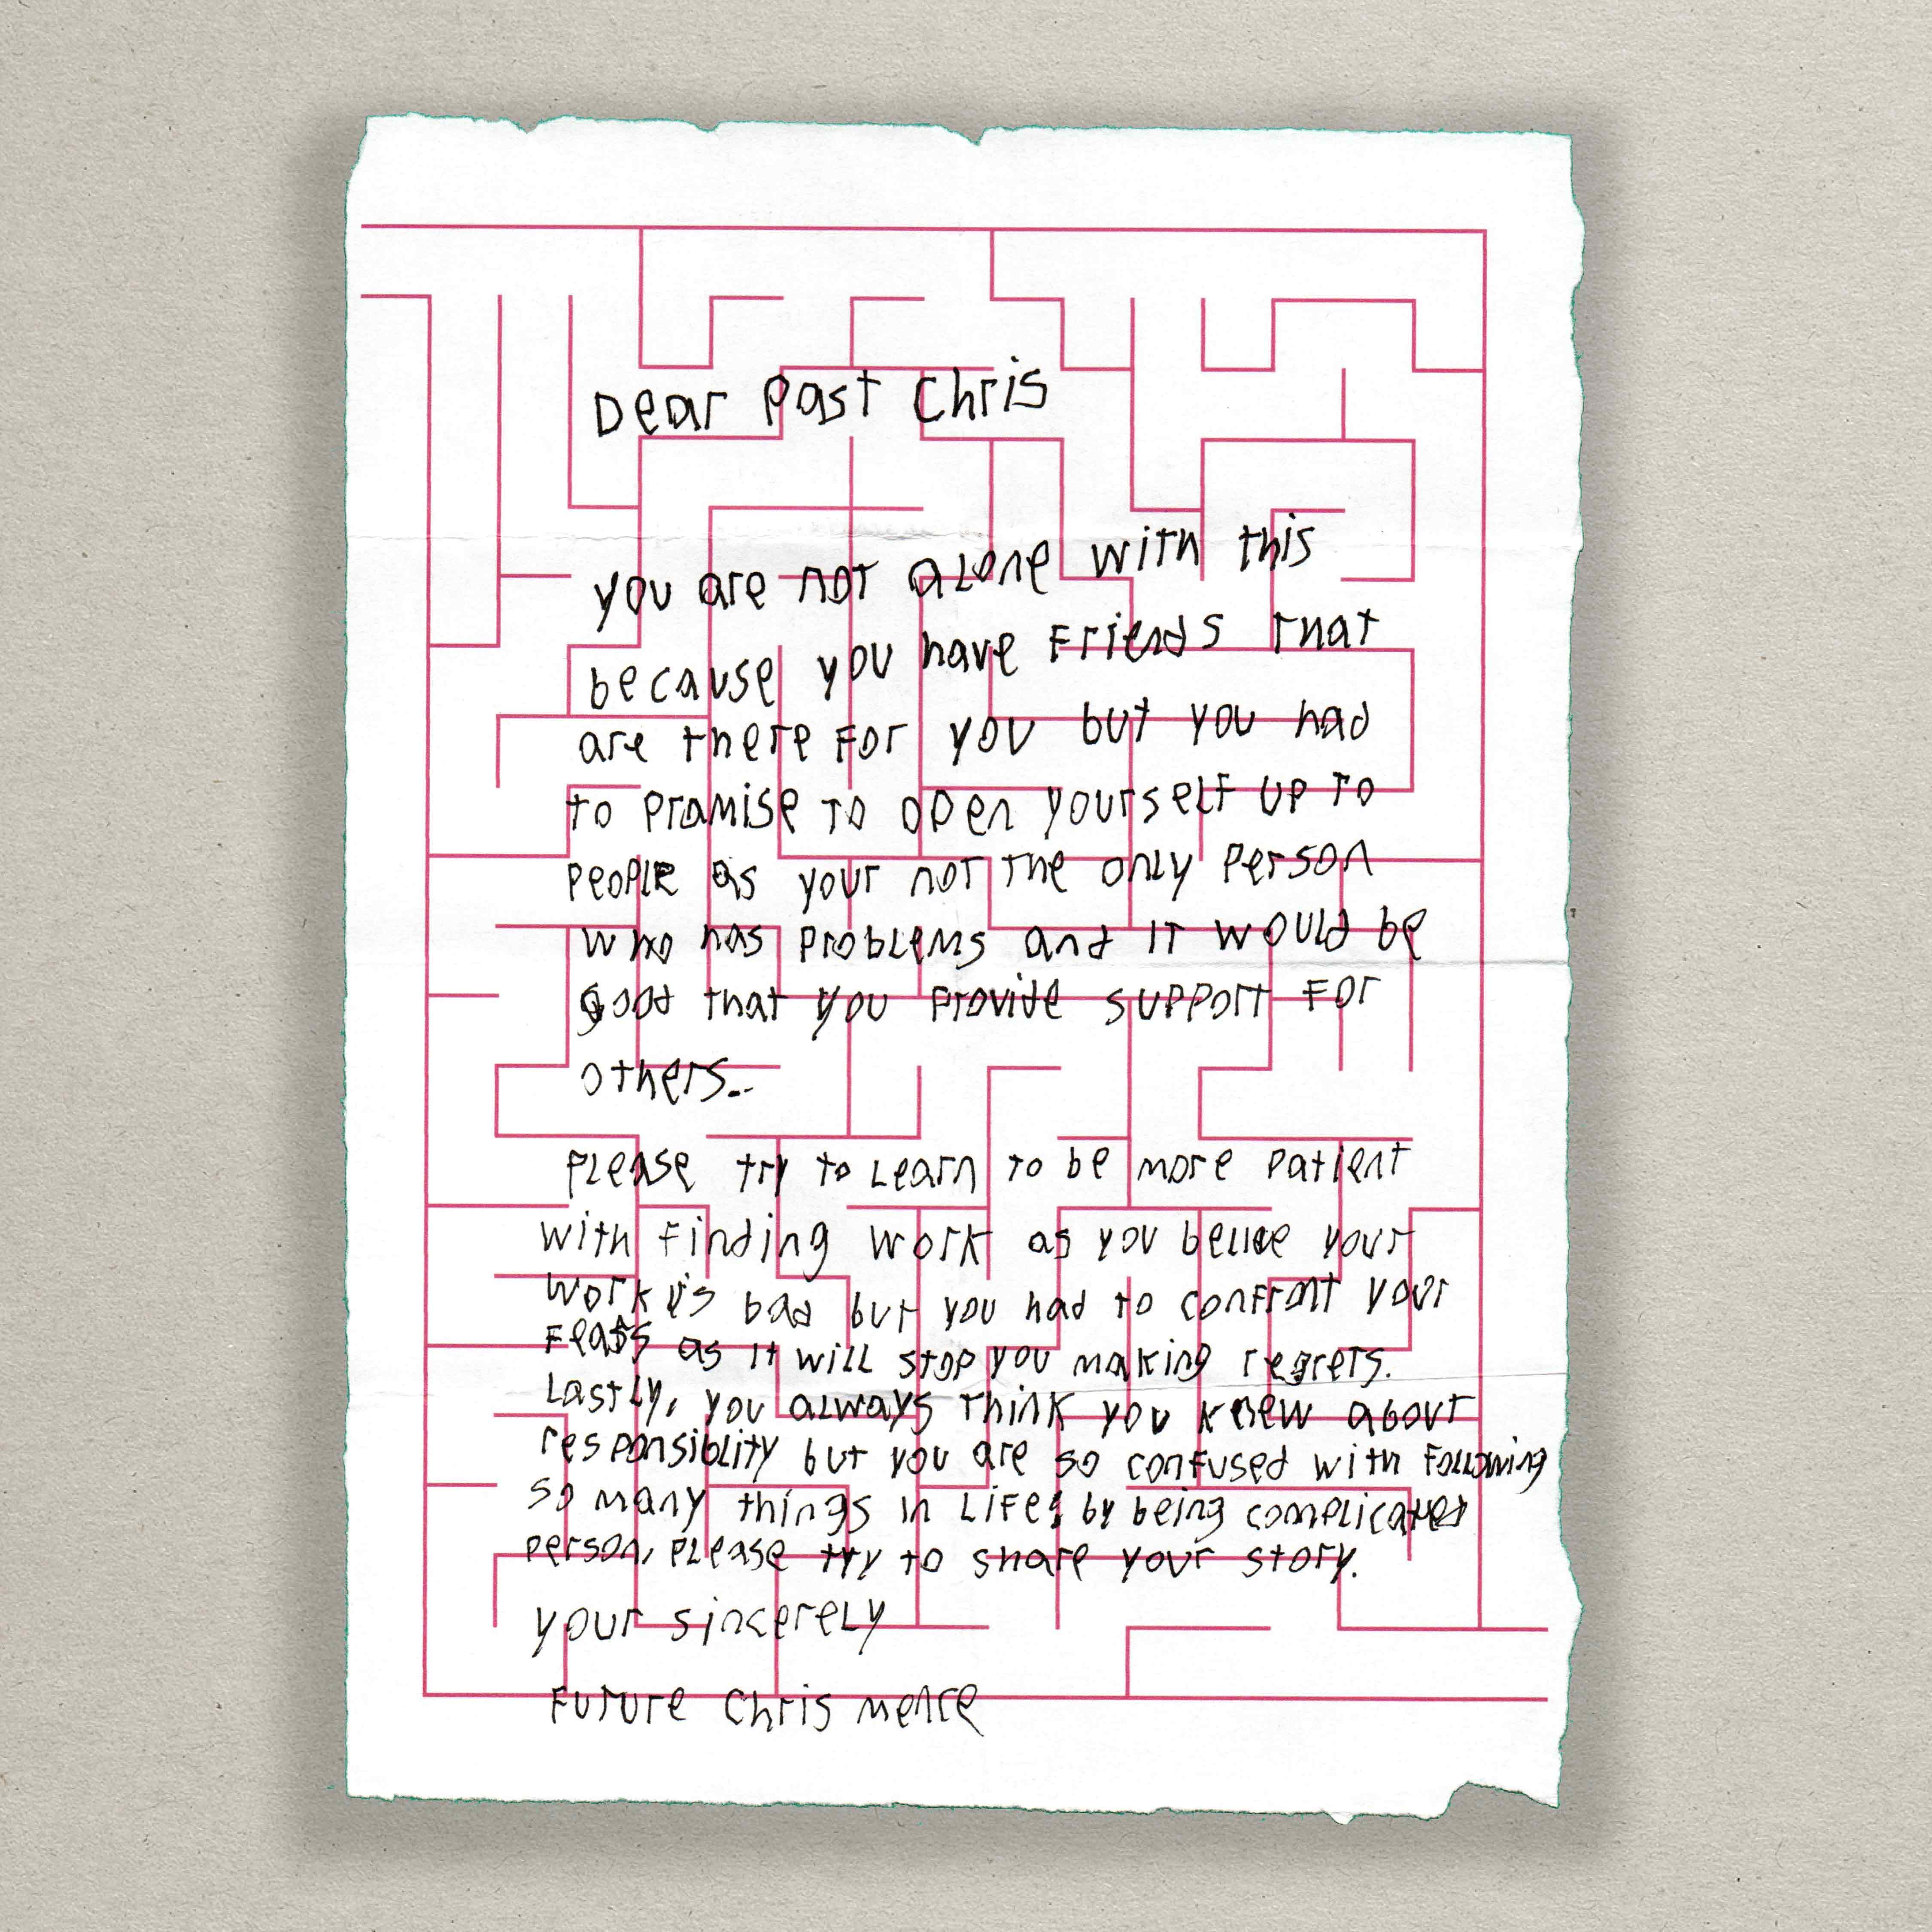 Dear Past Chris
you are not alone with this
because you have Friends that
are there For you but you had
to promise to open yourself up to
people as your not the only person
who has problems and it would be
good that you provide support For
others..
Please try to Learn to be more patient
with Finding work as you belive your
work is bad but you had to confront your
Fears as it will stop you making regrets.
Lastly, you always think you knew about
responsiblity but you are so confused with Following
so many things in LiFe; by being complicated
person, Please try to share your story.
your sincerely
Future Chris